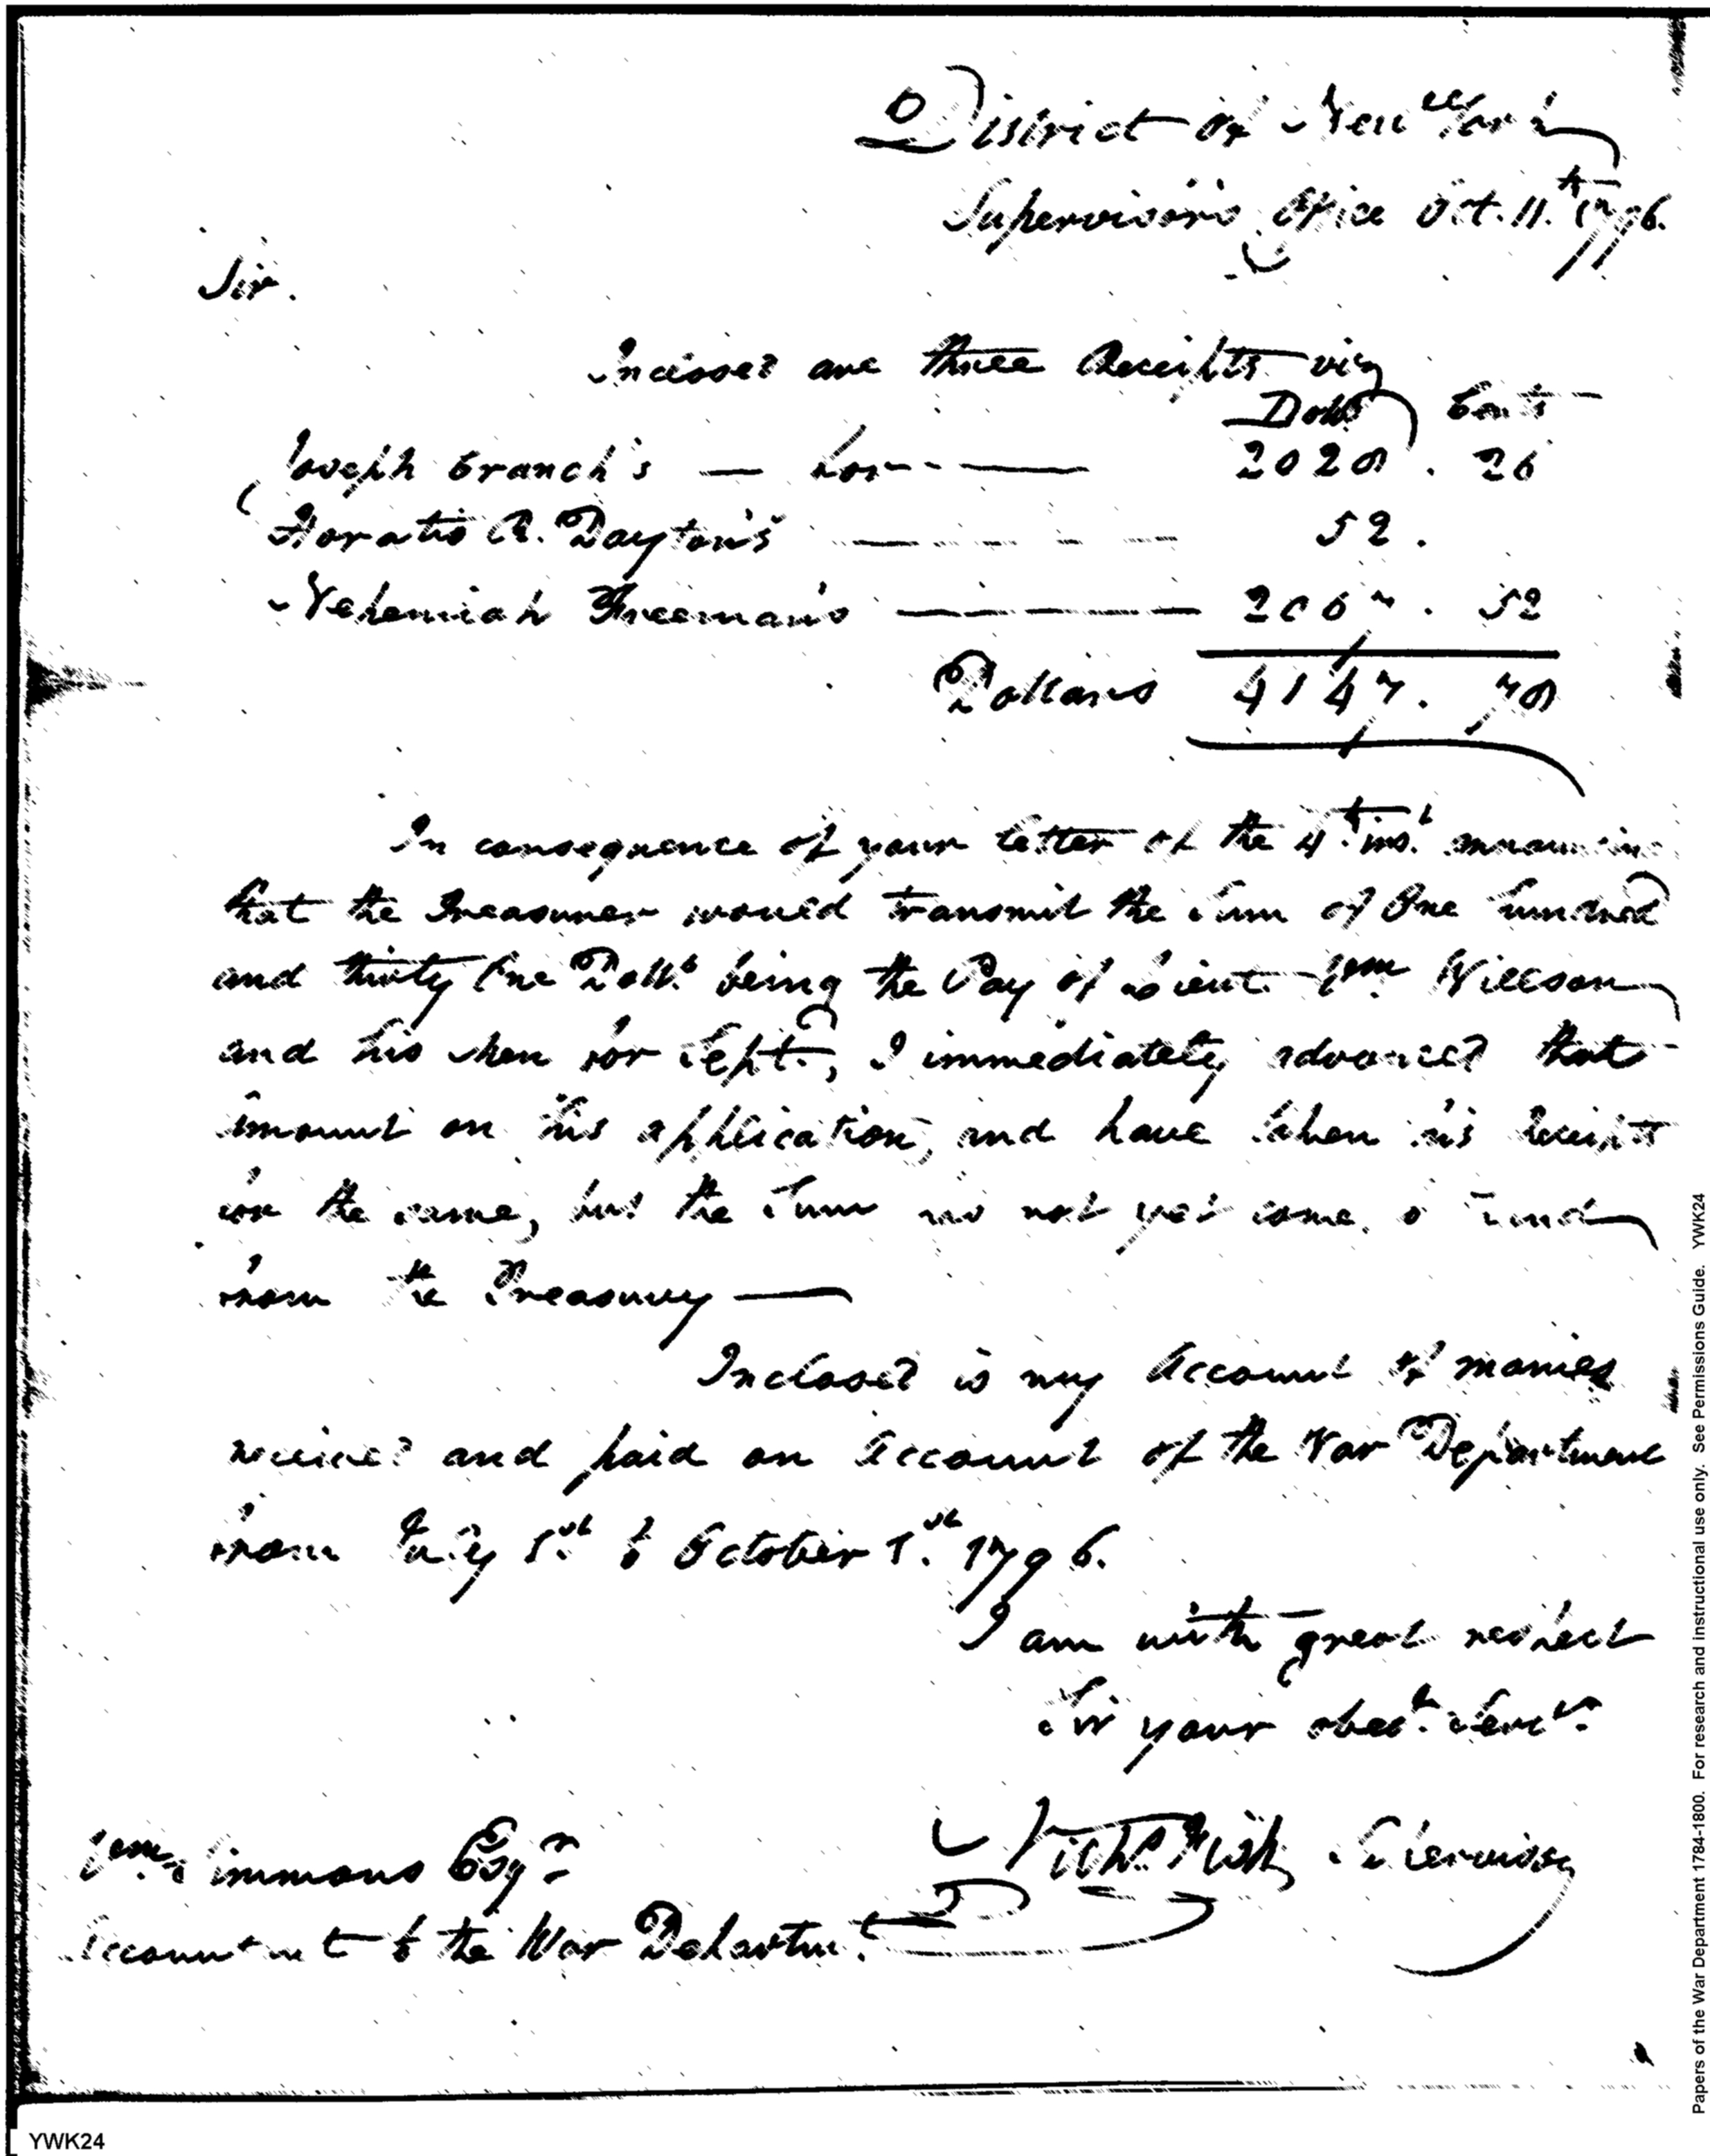 District of New York
Supervisor's Office Oct. 11.th 1796.
Sir.
Inclosed are three Receipts viz
Dolls Cents
Joseph Cranch's — for — 2028. 26
Horatio R. Dayton's — 52.
Nehemiah Freeman's — 2067. 52
Dollars 4147. 78
In consequence of your letter of the 4th inst. announcing
that the Treasurer would transmit the Sum of One hundred
and thirty One Dolls. being the Pay of Lieut. Wm Willson
and his men for Sept., I immediately advanced that
amount on his application, and have taken his Receipts
for the same, but the Sum has not yet come to hand
from the Treasury —
Inclosed is my Account of monies
received and paid on Account of the War Department
from July 1st to October 1.st 1796.
I am with great respect
Sir your obedt. Servt.
Nichs Fish Supervisor
Wm Simmons Esqr.
Accountant to the War Departmt.
Papers of the War Department 1784-1800. For research and instructional use only. See Permissions Guide. YWK24
YWK24